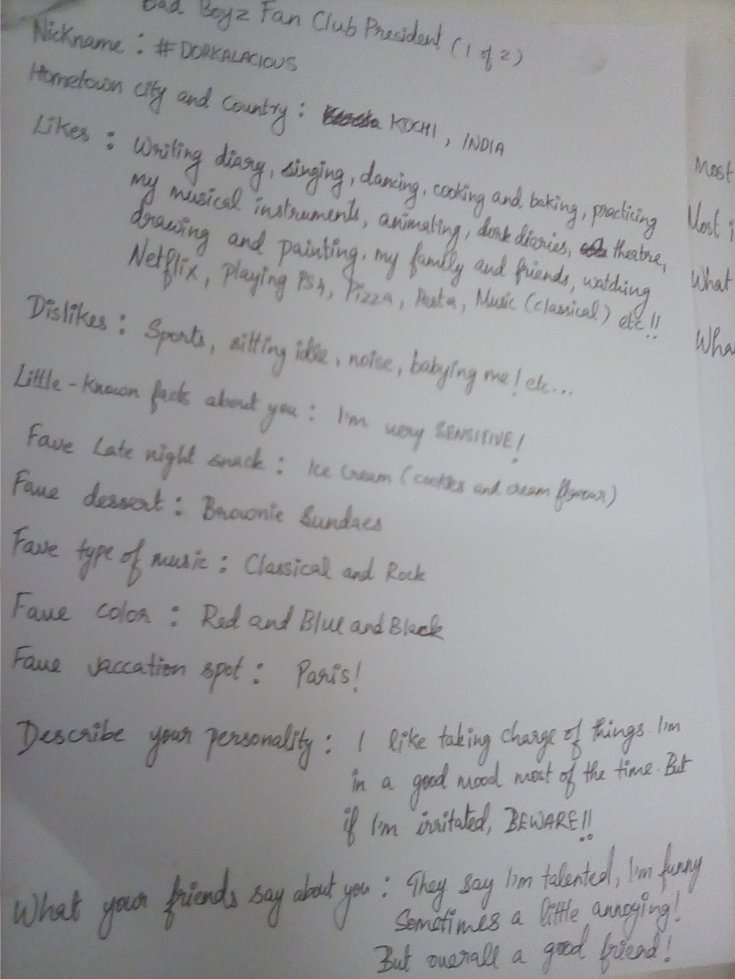 Bad Boyz Fan Club President (1 of 2)
Nickname : #DORKALACIOUS
Hometown city and country : KOCHI, INDIA
Likes : Writing diary, singing, dancing, cooking and baking, practicing
my musical instruments, animating, dork diaries, theatre,
drawing and painting, my family and friends, watching
Netflix, playing PS4, Pizza, Pasta, Music (classical) etc!!
Dislikes : Sports, sitting idle, noise, babying me! etc...
Little-Known facts about you : I'm very SENSITIVE!
Fave Late night snack : Ice Cream (cookies and cream flavour)
Fave dessert : Brownie Sundaes
Fave type of music : Classical and Rock
Fave color : Red and Blue and Black
Fave vaccation spot : Paris!
Describe your personality : I like taking charge of things. I'm
in a good mood most of the time. But
if I'm irritated, BEWARE!!
What your friends say about you : They say I'm talented, I'm funny
Sometimes a little annoying!
But overall a good friend!
Most
Most i
What
Wha